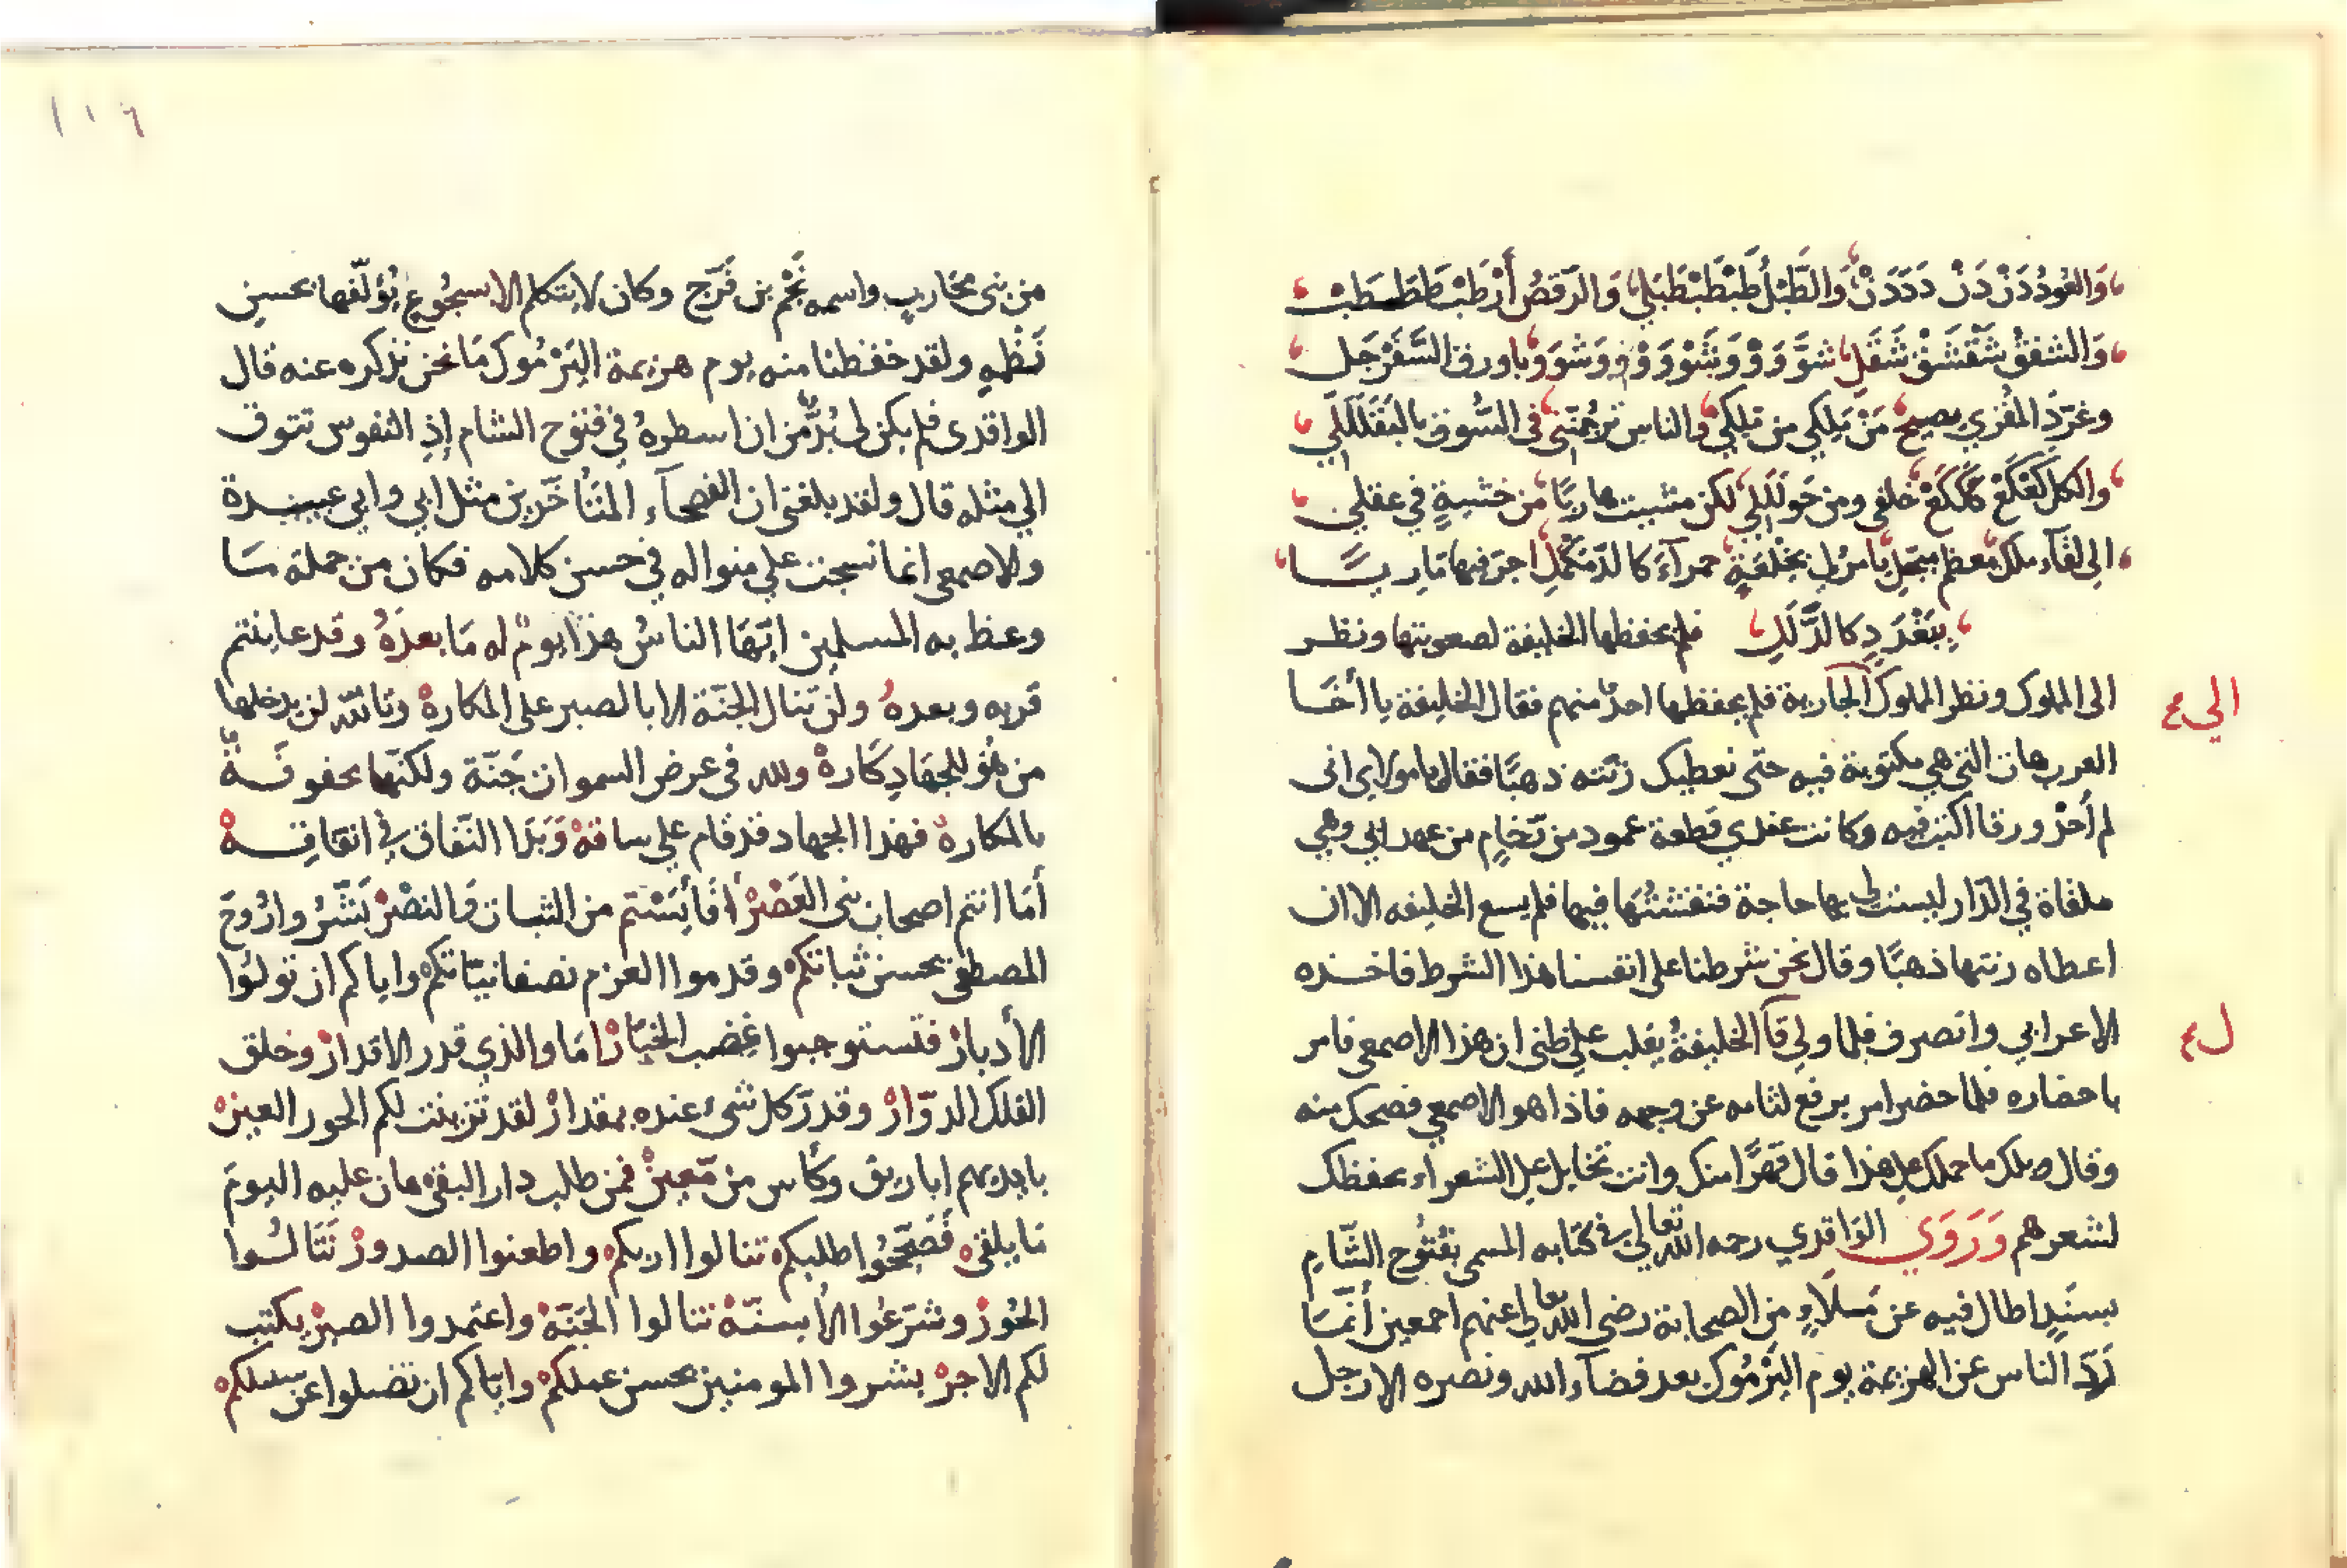 وَالعُودُ دَنْ دَنْ دَدَدَنْ وَالطَّبْلُ طَبْطَبْطَبَلِي وَالرَّقْصُ أَرْطَبْطَطَسطَبْ
وَالشقْقُ شَقْشَقْ شَقَلِ شوَّوَوْ وَشَوْوَوْ وَشووَ باورق السَّفَرْجَل
وغرّدَ المغْزي يصيح مَنْ مَلِكي من مَلِكي والناس ترجُمَنِي في السُّوق بالبَقَلَلَلِي
والكل كَعْكَعْ كَلَكَعْ خلفي ومن حَوَلَلَلي لكن مشيت هاربًا من خشيةٍ في عقلي
الى لقآء ملك معظم مبجل يامر لي بخلعةٍ حمرآءَ كالدَّمَكْمَلِ اجر فيها مَاربًا
بِبَغْدَدِ كالدَّلَلِ فلم يحفظها الخليفة لصعوبتها ونظر
الي ع
الى الملوك ونظر الملوك الجارية فلم يحفظها احدٌ منهم فقال الخليفة يا أخَا
العرب هات التي هي مكتوبة فيه حتى نعطيك زنته ذهبًا فقال يا مولاي اني
لم أجدْ ورقا اكتب فيه وكانت عندي قطعة عمود من رّخامٍ من عهد ابي وهي
ملقاة في الدّار ليست لي بها حاجة فنقشتُهَا فيها فلم يسع الخليفه الا ان
اعطاه زنتها ذهبًا وقال نحن شرطنا على انفسنا هذا الشرط فاخذه
ل ع
الاعرابي وانصرف فلما ولي قآ الخليفةُ يغلب علي ظني ان هذا الاصمعي فامر
باحضاره فلما حضر امر برفع لثامه عن وجهه فاذا هو الاصمعي فضحك منه
وقال ويلك ما حملك علي هذا قال قهرًا منك وانت تخايل علي الشعرآء بحفظك
لشعرهم وَرَوَي الواقدي رحمه الله تعالى في كتابه المسمى بفُتُوح الشَّامِ
بسنَدٍ اطال فيه عن مَلاءٍ من الصحابة رضي الله تعالى عنهم اجمعين أنَّمَا
رَدَّ الناس عن الهزيمة يوم اليَرْمُوك بعد قضآء الله ونصره الا رجل
١١٦
من بني محَاربٍ واسمه نَجْم بن فَرَج وكان لا يتكلم الا بسجُوعٍ يُؤلّفها بحسن
نَظْمِهِ ولقد حفظنا منه يوم هزيمة اليَرْمُوك مَا نحن نذكره عنه قال
الواقدى فلم يكن لي بُدٌّ من ان اسطرهُ في فتوح الشام إذِ النفوس تتوق
الي مثله قال ولقد بلغني ان الفصحآء المتَأخّرين مثل ابي وابي عبيدة
والاصمعي انما نسجت علي منواله في حسن كلامه فكان من جملة مَا
وعظ به المسلمين ايّهَا الناسُ هذا يومٌ له مَا بعدَهُ وقد عاينتم
قربه وبعدهُ ولن تنال الجنّة الا بالصبر على المكارهْ وتاللّه لن يدخلها
من هُوَ للجهَادِ كَارهْ ولله في عرض السموات جَنّة ولكنّها محفوفَةٌ
بالمكارهْ فهذا الجهاد قد قام علي ساقهْ وَبَدَا النّفاق في انفَاقِهْ
أمَا انتم اصحاب نبي العَصْرْ أفأيَسْتم من الثبات وَالنصْرْ بَشّرُوا رُوحَ
المصطفي بحسن ثباتكمْ وقدموا العزم بصفا نيّاتكمْ واياكم ان تولُوا
الأدبارْ فتستوجبوا غضب الجبّارْ امَا والذي قدر الاقدارْ وخلق
الفلك الدوّارْ وقدرَ كل شيء عنده بمقدارْ لقد تزينت لكم الحور العينْ
بايديهم اباريق وكأس من مّعينْ فمن طلب دار البقىْ هان عليه اليومَ
مَا يلقيْ فَصَحِّحُوا طلبكمْ تنالوا اربكمْ واطعنوا الصدورْ تَنَالُوا
الحُورْ وشرّعُوا الأسنّةْ تنالوا الجَنّةْ واعتمدوا الصبرْ يكتب
لكم الاجرْ بشروا المومنين بحسن عملكمْ واياكم ان تضلوا عن سبيلكمْ